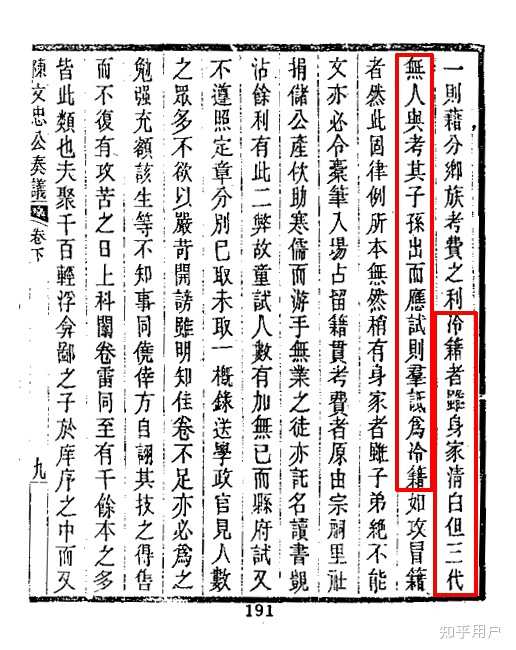 一則藉分鄉族考費之利冷籍者雖身家清白但三代
無人與考其子孫出而應試則羣詆爲冷籍如攻冒籍
者然此固律例所本無然稍有身家者雖子弟絕不能
文亦必令槖筆入場占留籍貫考費者原由宗祠里社
捐儲公產伙助寒儒而游手無業之徒亦託名讀書覬
沾餘利有此二弊故童試人數有加無已而縣府試又
不遵照定章分別已取未取一概錄送學政官見人數
之眾多不欲以嚴苛開謗雖明知佳卷不足亦必爲之
勉强充額該生等不知事同僥倖方自詡其技之得售
而不復有攻苦之日上科闈卷雷同至有千餘本之多
皆此類也夫聚千百輕浮弇鄙之子於庠序之中而又
陳文忠公奏議
卷下
九
191
知乎用户